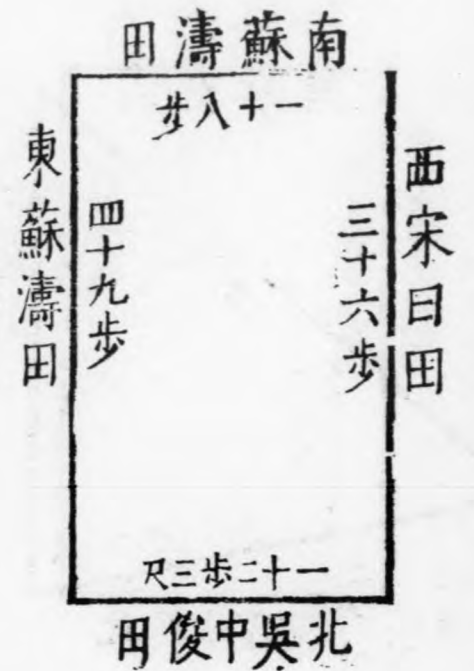 南蘇濤田
一十八步
西宋曰田
三十六步
四十九步
東蘇濤田
一十二步三尺
北吳中俊田